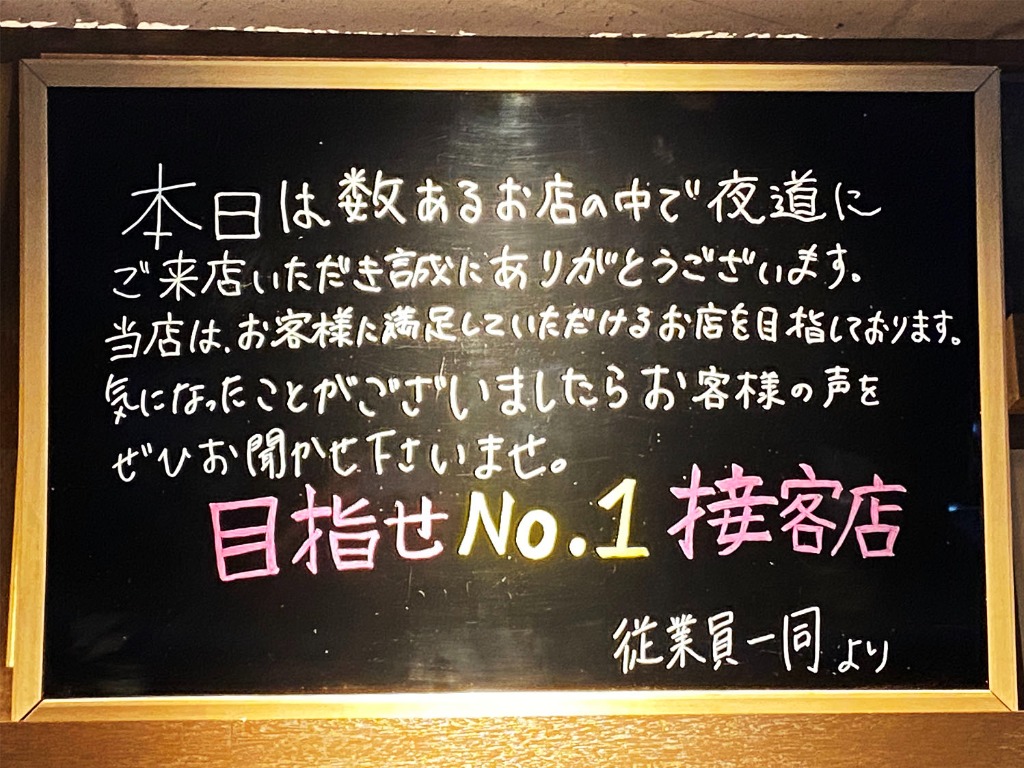 本日は数あるお店の中で夜道に
ご来店いただき誠にありがとうございます。
当店は、お客様に満足していただけるお店を目指しております。
気になったことがございましたらお客様の声を
ぜひお聞かせ下さいませ。
目指せNo.1接客店
従業員一同より